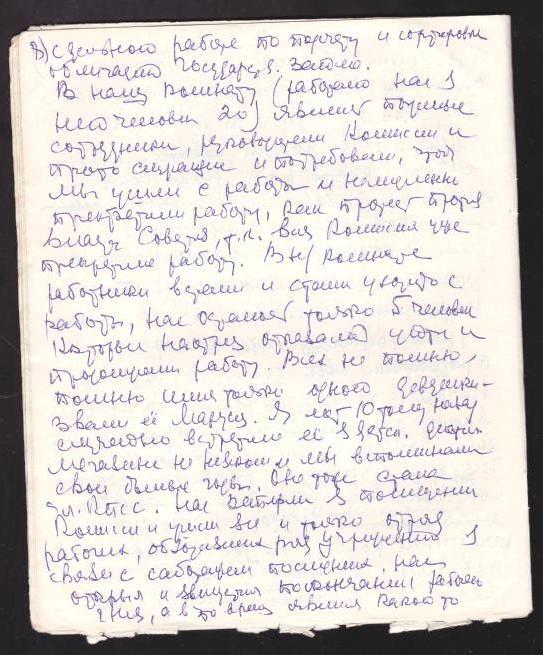 3) сдельного работе по подсчету и сортировки
облигаций Государств. займа.
В нашу комнату (работало нас в
ней человек 20) явились
сотрудники, руководители Комиссии и
просто служащие и потребовали, чтоб
мы ушли с работы и немедленно
прекратили работу, как протест против
власти Советов, т.к. вся Комиссия уже
прекратила работу. В н/ комнате
работники встали и стали уходить с
работы, нас осталось только 5 человек
которые наотрез отказались уйти и
продолжали работу. Всех не помню,
помню имя только одного девушки -
звали её Маруся. Я лет 10 тому назад
случайно встретила её в
и мы вспоминали
свои былые годы. Она тоже стала
чл. КПСС. Нас заперли в помещении
Комиссии и ушли все и только отряд
рабочих, обходивших ряд учреждений в
связи с саботажем последних, нас
открыл и выпустил по окончании рабочего
дня, а в то время явился какой то